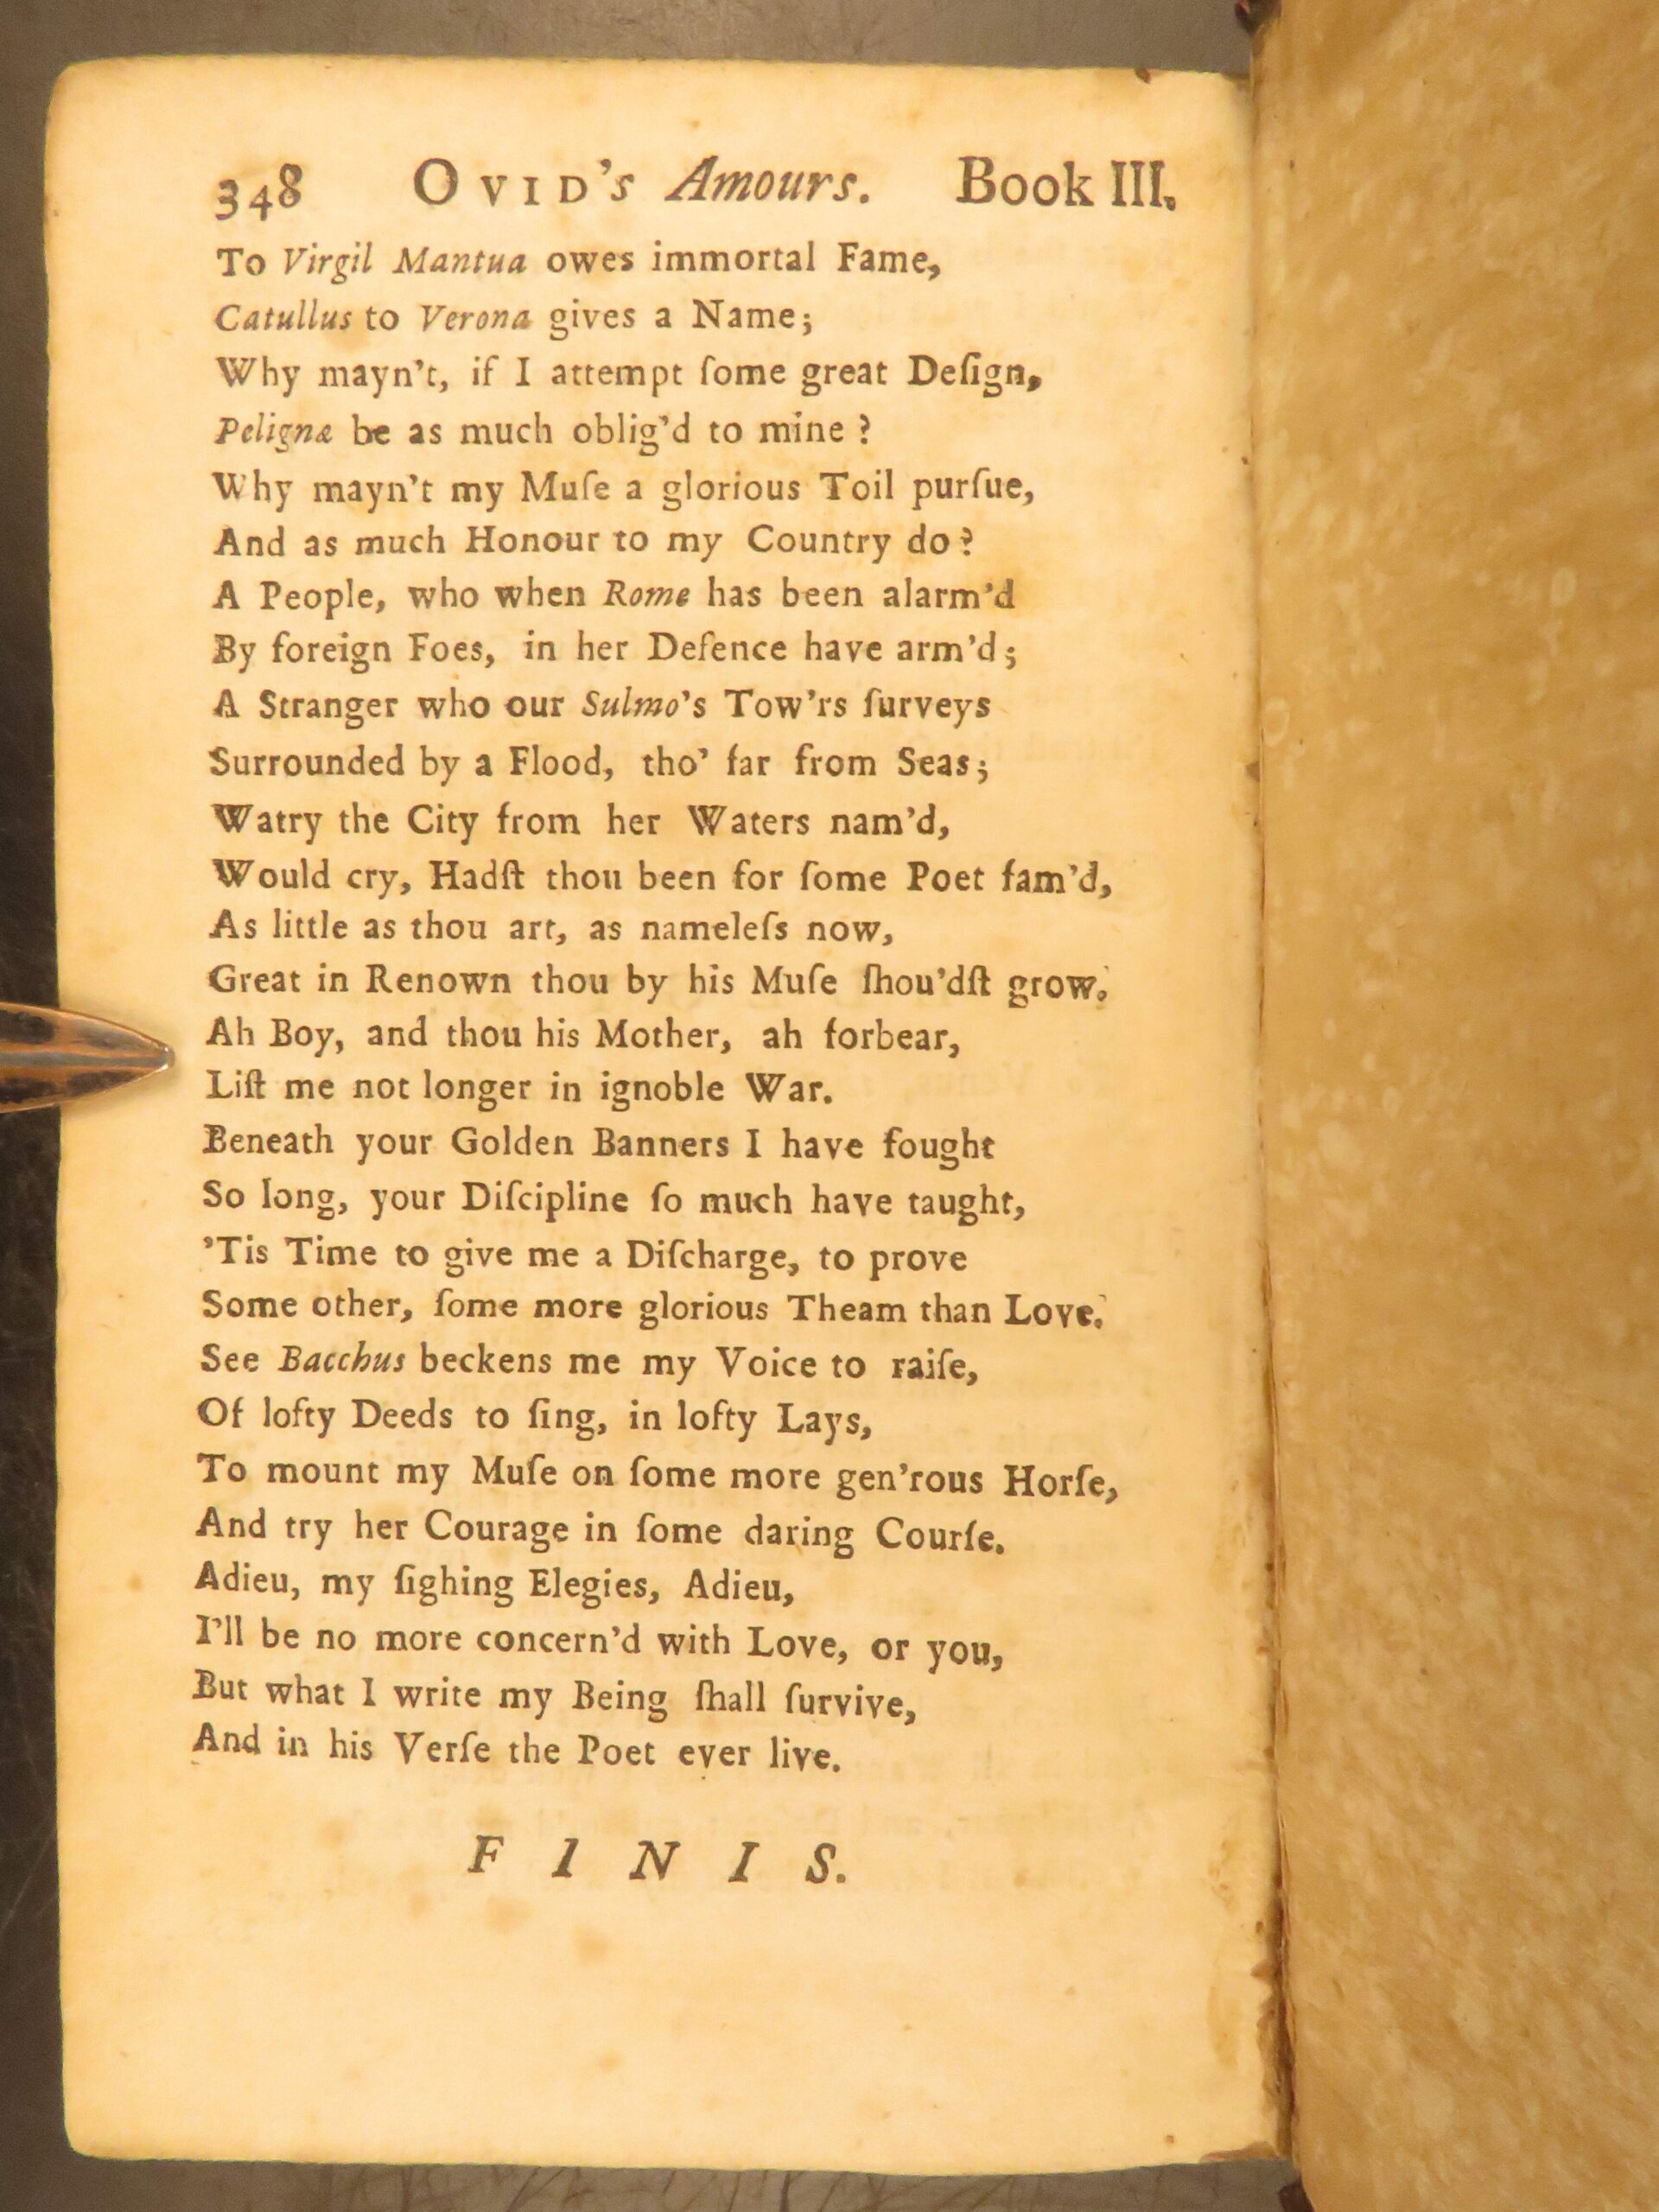 348 OVID's Amours. Book III.
To Virgil Mantua owes immortal Fame,
Catullus to Verona gives a Name;
Why mayn't, if I attempt ſome great Deſign,
Pelignæ be as much oblig'd to mine?
Why mayn't my Muſe a glorious Toil purſue,
And as much Honour to my Country do?
A People, who when Rome has been alarm'd
By foreign Foes, in her Defence have arm'd;
A Stranger who our Sulmo's Tow'rs ſurveys
Surrounded by a Flood, tho' far from Seas;
Watry the City from her Waters nam'd,
Would cry, Hadſt thou been for ſome Poet fam'd,
As little as thou art, as nameleſs now,
Great in Renown thou by his Muſe ſhou'dſt grow.
Ah Boy, and thou his Mother, ah forbear,
Liſt me not longer in ignoble War.
Beneath your Golden Banners I have fought
So long, your Diſcipline ſo much have taught,
'Tis Time to give me a Diſcharge, to prove
Some other, ſome more glorious Theam than Love.
See Bacchus beckens me my Voice to raiſe,
Of lofty Deeds to ſing, in lofty Lays,
To mount my Muſe on ſome more gen'rous Horſe,
And try her Courage in ſome daring Courſe.
Adieu, my ſighing Elegies, Adieu,
I'll be no more concern'd with Love, or you,
But what I write my Being ſhall ſurvive,
And in his Verſe the Poet ever live.
F I N I S.